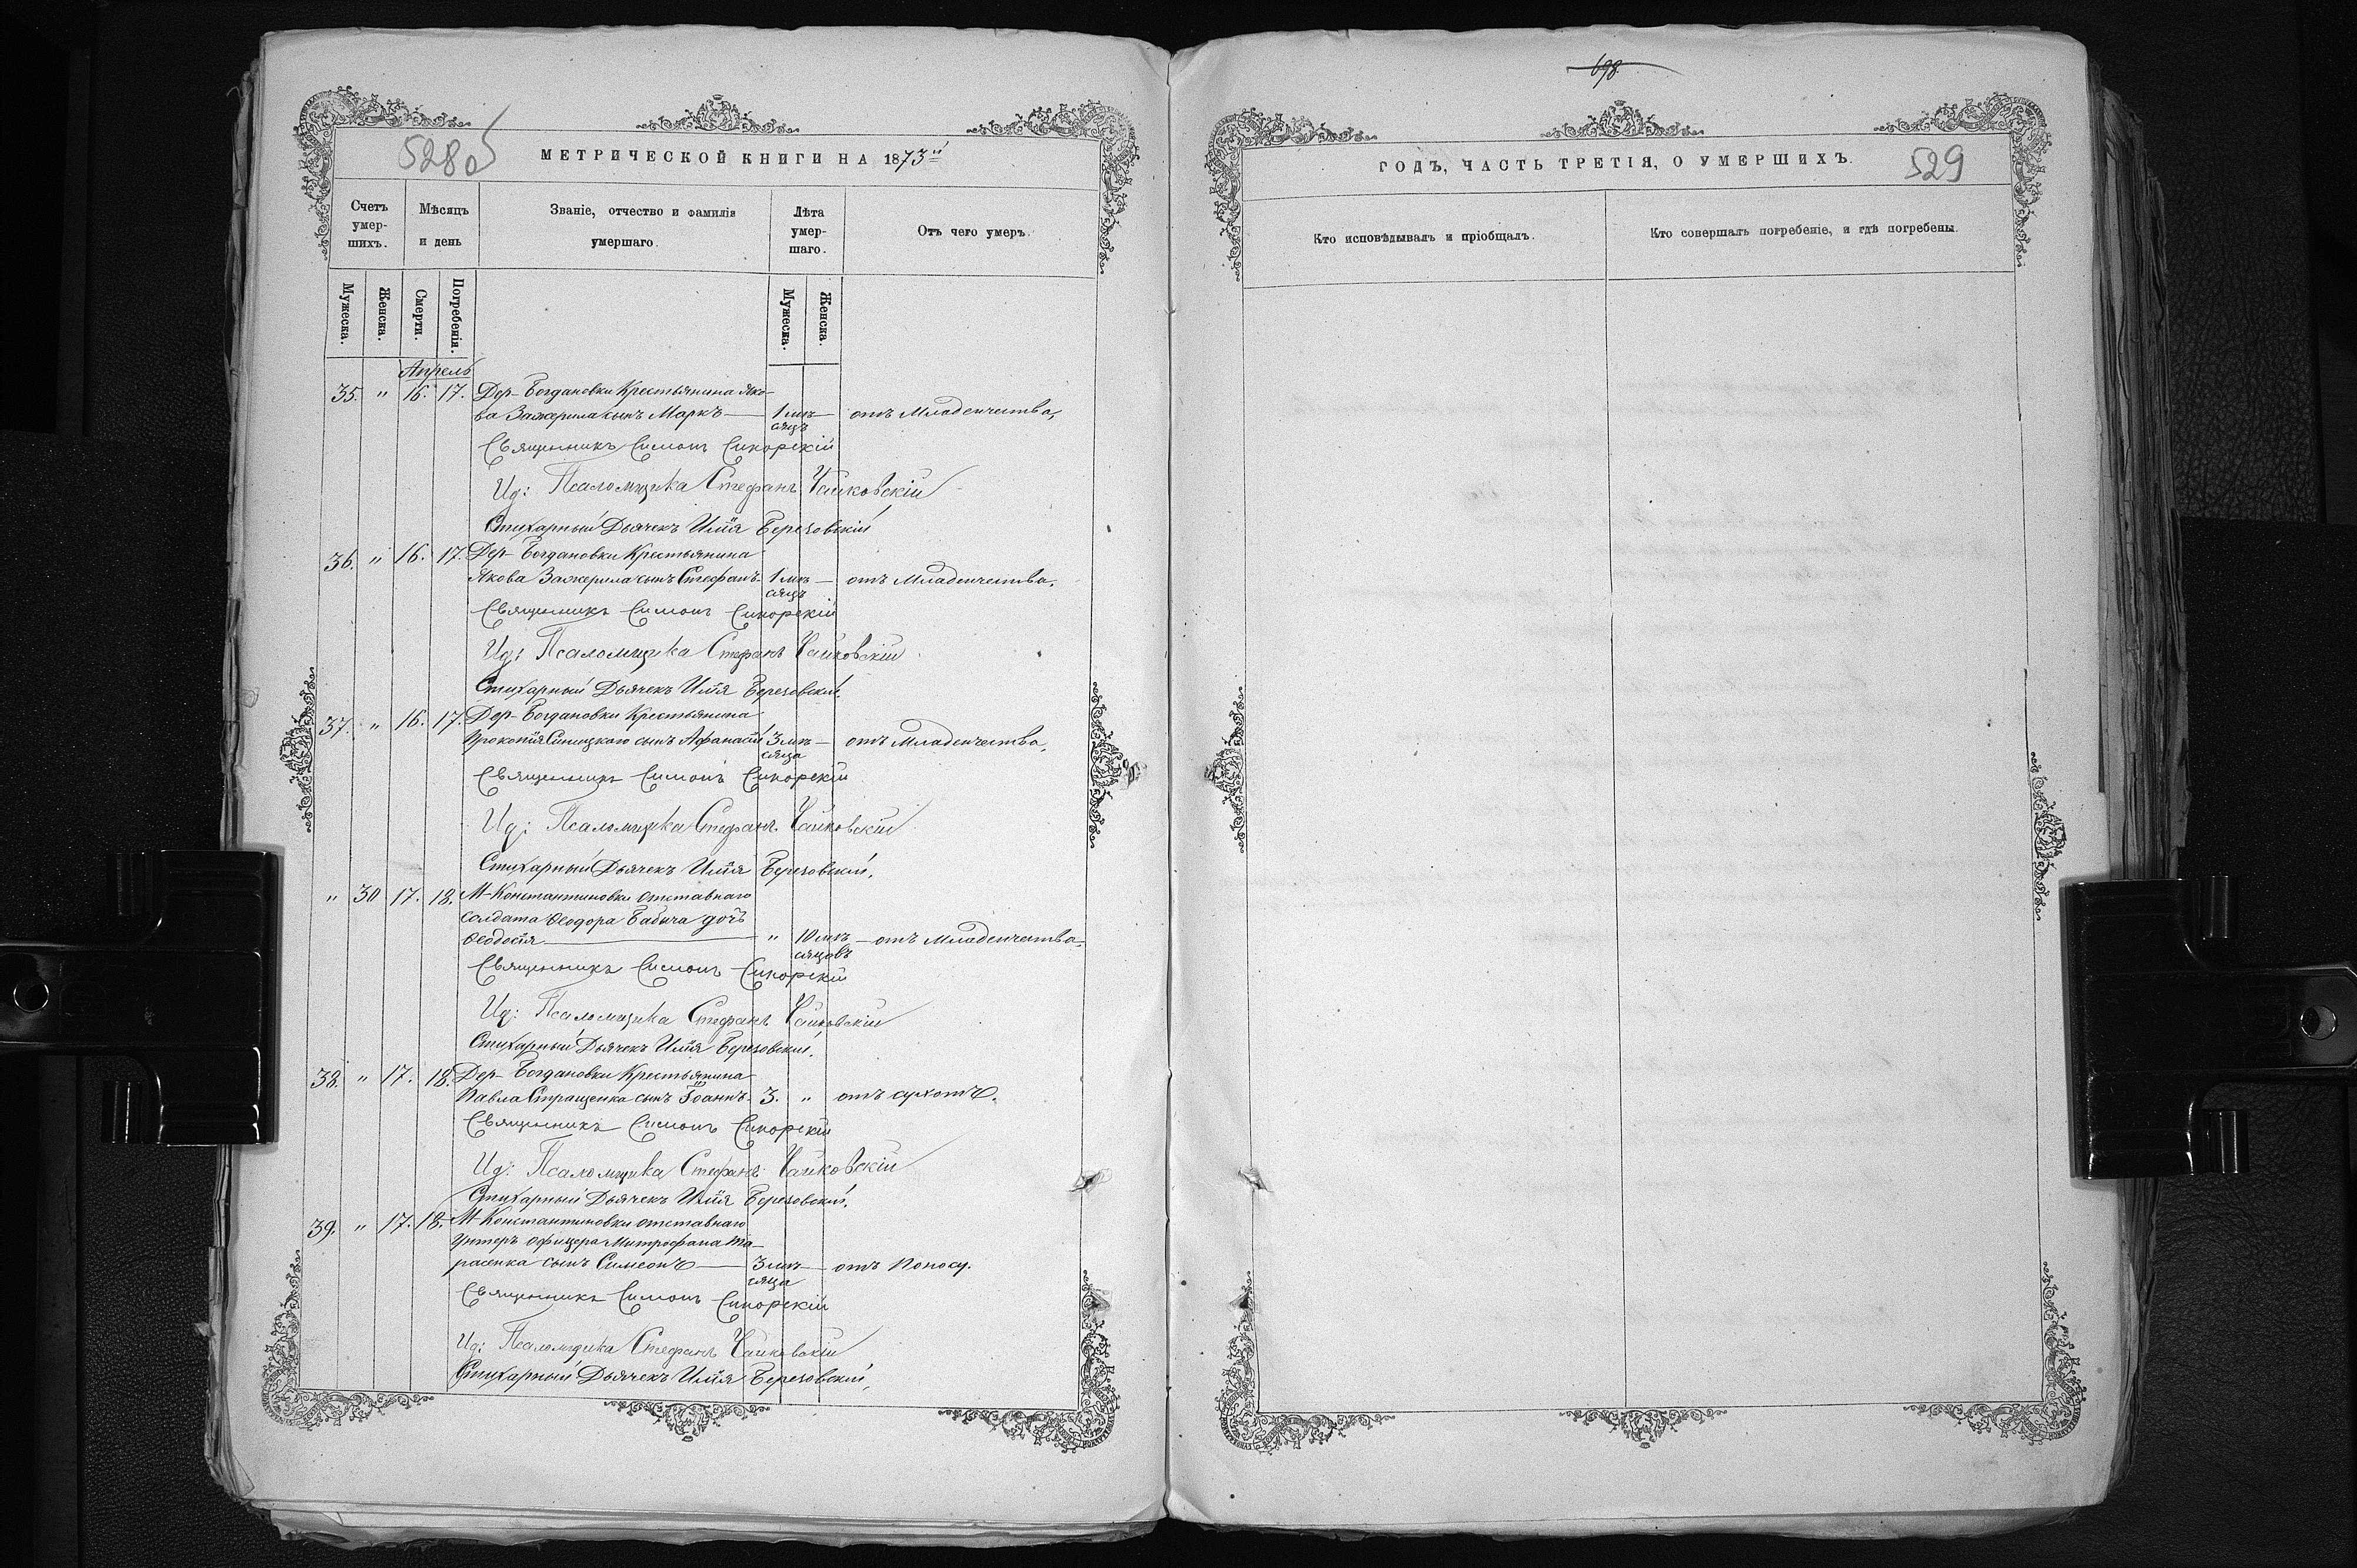 698
528об
МЕТРИЧЕСКОЙ КНИГИ НА 1873й
Счетъ умер-шихъ.
Мѣсяцъ и день
Званіе, отчество и фамилія умершаго.
Лѣта умер-шаго.
Отъ чего умеръ.
Мужеска.
Женска.
Смерти.
Погребенія.
Мужеска.
Женска.
Апрель
35. " 16. 17. Дер- Богдановки Крестьянина Яко-
ва Зажерила сынъ Маркъ — 1 мѣ- — отъ Младенчества,
сяцъ
Священникъ Симонъ Сикорскій
Ид: Псаломщика Стефанъ Чайковскій
Стихарный Дьячекъ Илія Березовскій
36. " 16. 17. Дер- Богдановки Крестьянина
Якова Зажерила сынъ Стефанъ- 1 мѣ — отъ Младенчества.
сяцъ
Священникъ Симонъ Сикорскій
Ид: Псаломщика Стефанъ Чайковскій
Стихарный Дьячекъ Илія Березовскій.
37. " 16. 17. Дер- Богдановки Крестьянина
Прокопія Синицкаго сынъ Афанасій 3 мѣ — отъ Младенчества,
сяца
Священникъ Симонъ Сикорскій
Ид: Псаломщика Стефанъ Чайковскій
Стихарный Дьячекъ Илія Березовскій.
" 30 17. 18. М- Константиновки отставнаго
солдата Ѳеодора Бабича дочь
Ѳеодосія — " 10 мѣ — отъ Младенчества,
сяцовъ
Священникъ Симонъ Сикорскій
Ид: Псаломщика Стефанъ Чайковскій
Стихарный Дьячекъ Илія Березовскій.
38. " 17. 18. Дер- Богдановки Крестьянина
Павла Стращенка сынъ Іоаннъ. 3. " отъ сухотъ.
Священникъ Симонъ Сикорскій
Ид: Псаломщика Стефанъ Чайковскій
Стихарный Дьячекъ Илія Березовскій.
39. " 17. 18. М- Константиновки отставнаго
Унтеръ офицера Митрофана Та-
расенка сынъ Симеонъ — 3 мѣ — отъ Поносу.
сяца
Священникъ Симонъ Сикорскій
Ид: Псаломщика Стефанъ Чайковскій
Стихарный Дьячекъ Илія Березовскій,
ГОДЪ, ЧАСТЬ ТРЕТІЯ, О УМЕРШИХЪ.
529
Кто исповѣдывалъ и пріобщалъ.
Кто совершалъ погребеніе, и гдѣ погребены.